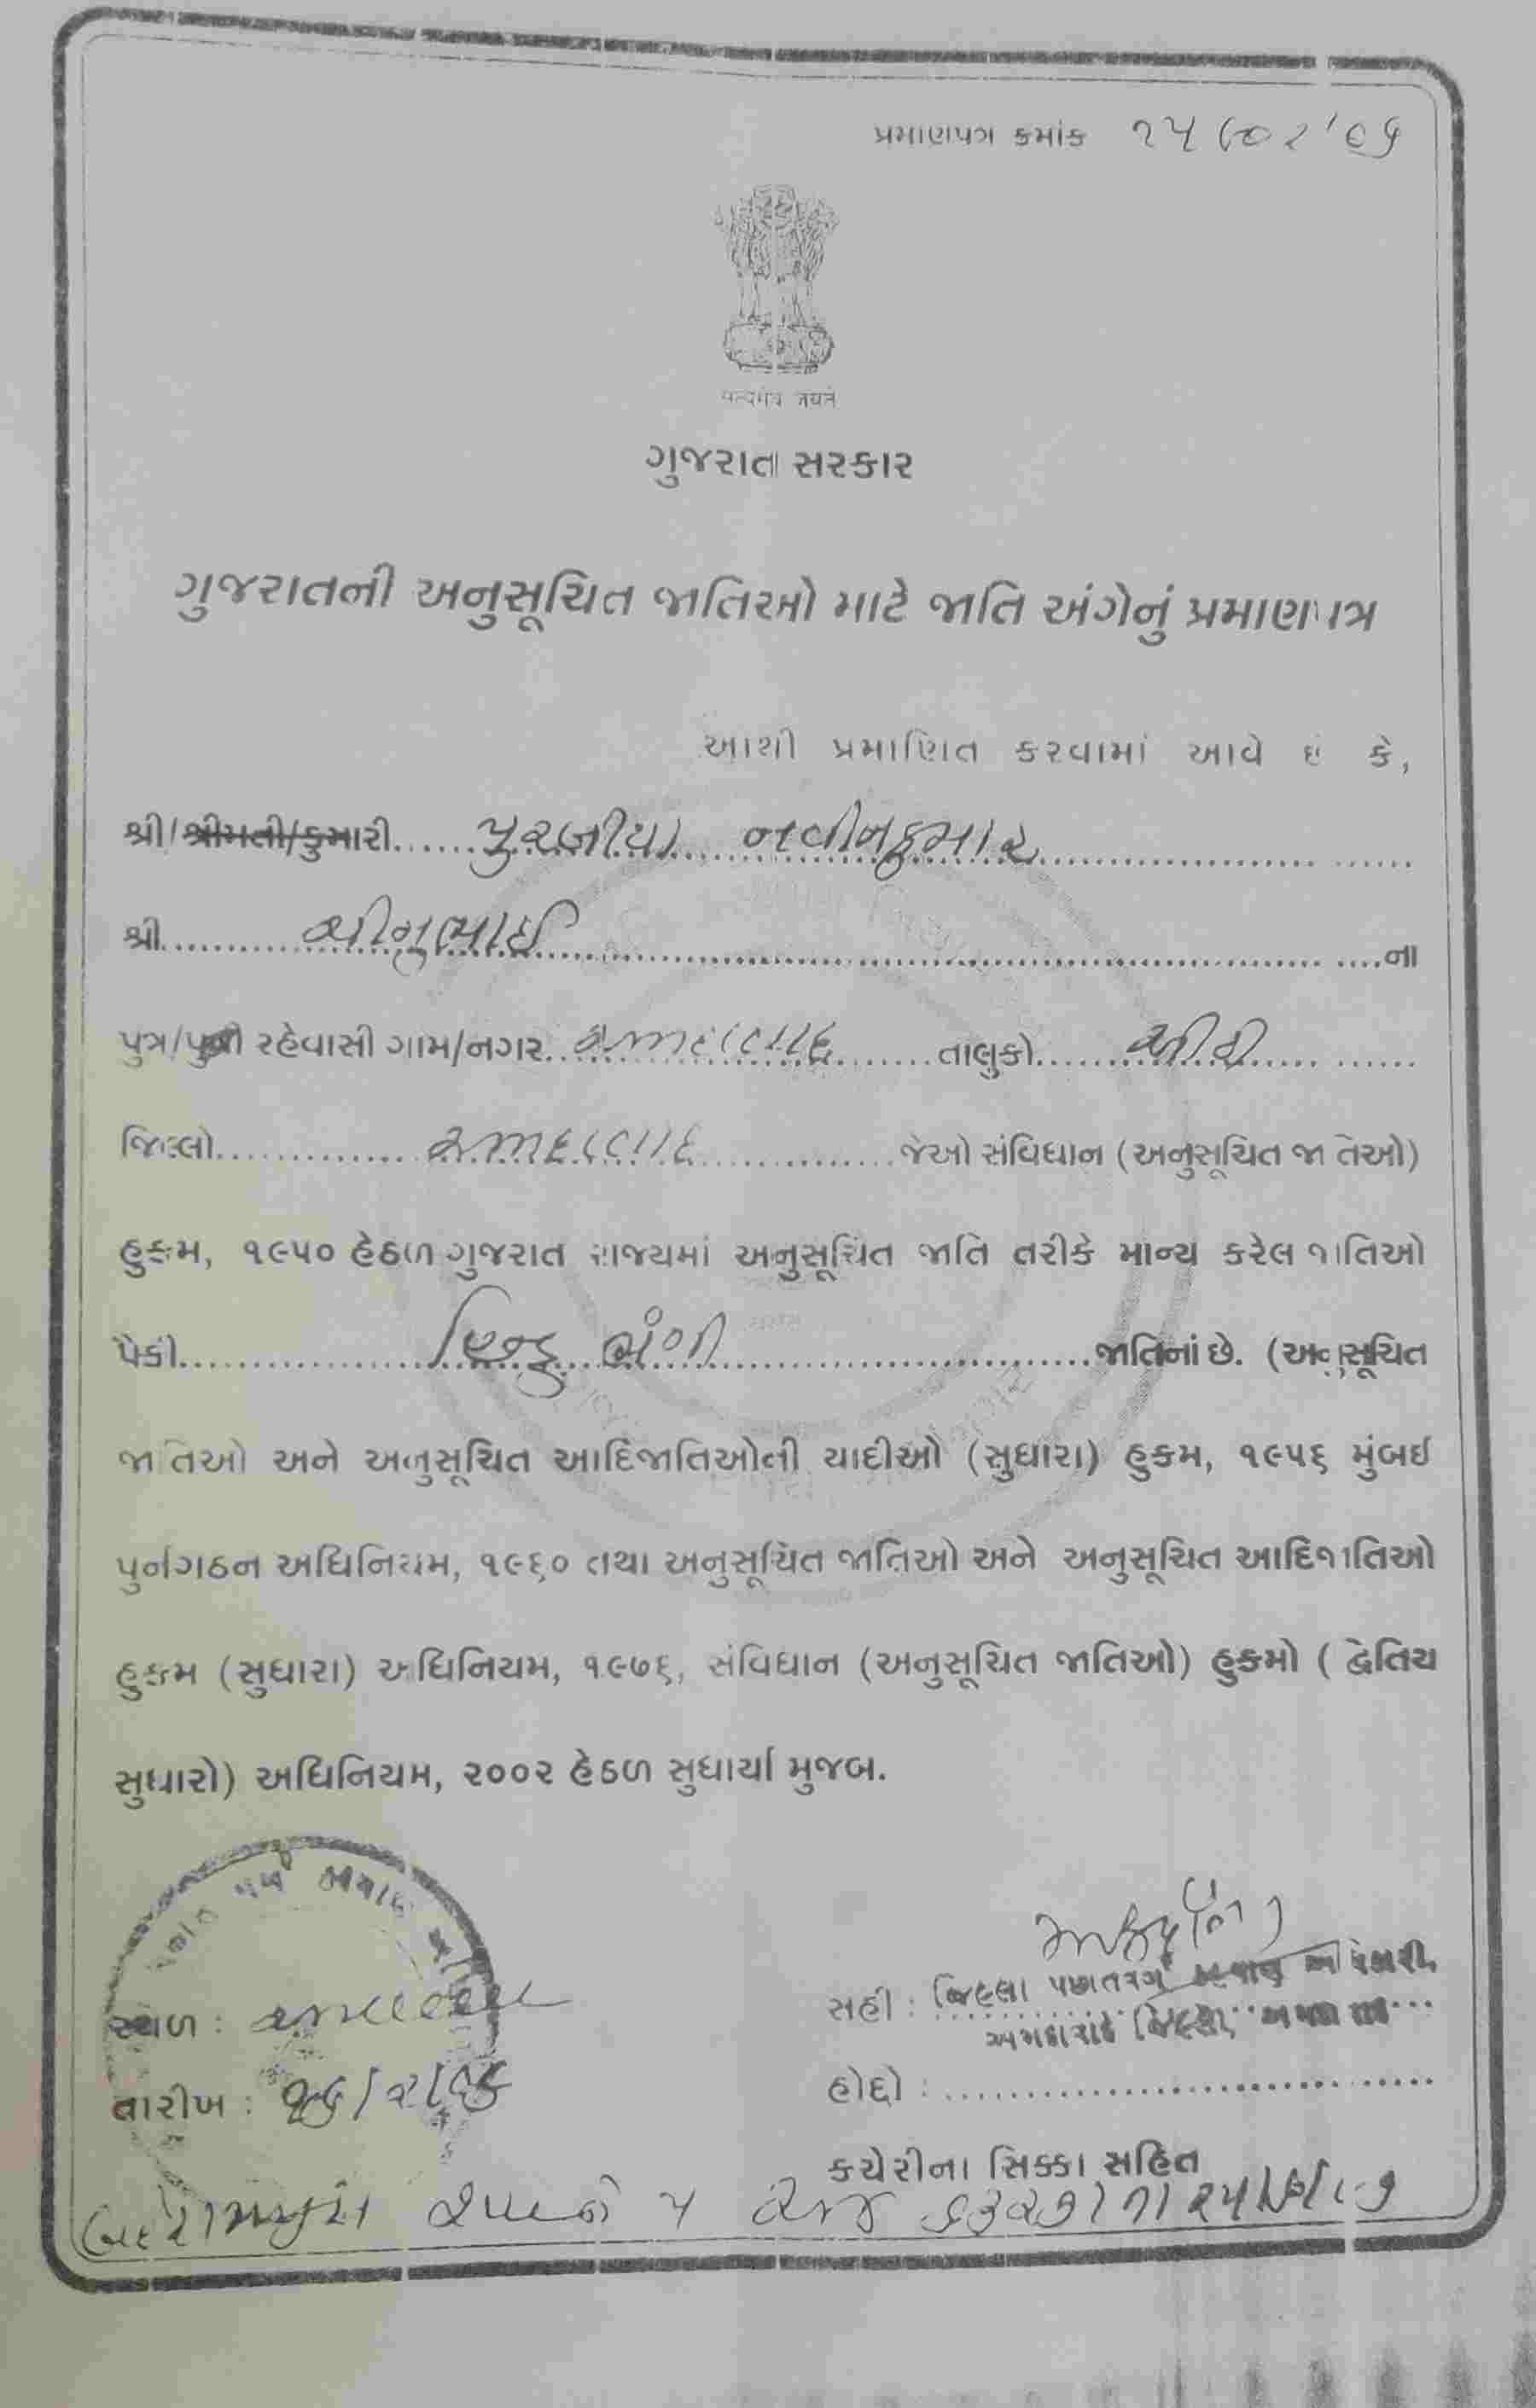 પ્રમાણપત્ર ક્રમાંક
सत्यमेव जयते
ગુજરાત સરકાર
ગુજરાતની અનુસૂચિત જાતિઓ માટે જાતિ અંગેનું પ્રમાણપત્ર
આથી પ્રમાણિત કરવામાં આવે છે કે,
શ્રી/શ્રીમતી/કુમારી...... નવીનકુમાર
શ્રી.......... ચીનુભાઈ ..........ના
પુત્ર/પુત્રી રહેવાસી ગામ/નગર.. અમદાવાદ ......તાલુકો..... સીટી
જિલ્લો............ અમદાવાદ ............જેઓ સંવિધાન (અનુસૂચિત જાતિઓ)
હુકમ, ૧૯૫૦ હેઠળ ગુજરાત રાજ્યમાં અનુસૂચિત જાતિ તરીકે માન્ય કરેલ જાતિઓ
પૈકી............ હિન્દુ ભંગી ............જાતિનાં છે. (અનુસૂચિત
જાતિઓ અને અનુસૂચિત આદિજાતિઓની યાદીઓ (સુધારા) હુકમ, ૧૯૫૬ મુંબઈ
પુર્નગઠન અધિનિયમ, ૧૯૬૦ તથા અનુસૂચિત જાતિઓ અને અનુસૂચિત આદિજાતિઓ
હુકમ (સુધારા) અધિનિયમ, ૧૯૭૬, સંવિધાન (અનુસૂચિત જાતિઓ) હુકમો ( દ્વિતિય
સુધારો) અધિનિયમ, ૨૦૦૨ હેઠળ સુધાર્યા મુજબ.
સહી : જિલ્લા પછાતવર્ગ કલ્યાણ અધિકારી,
સ્થળ : અમદાવાદ
અમદાવાદ જિલ્લો, અમદાવાદ
હોદ્દો :
તારીખ :
કચેરીના સિક્કા સહિત